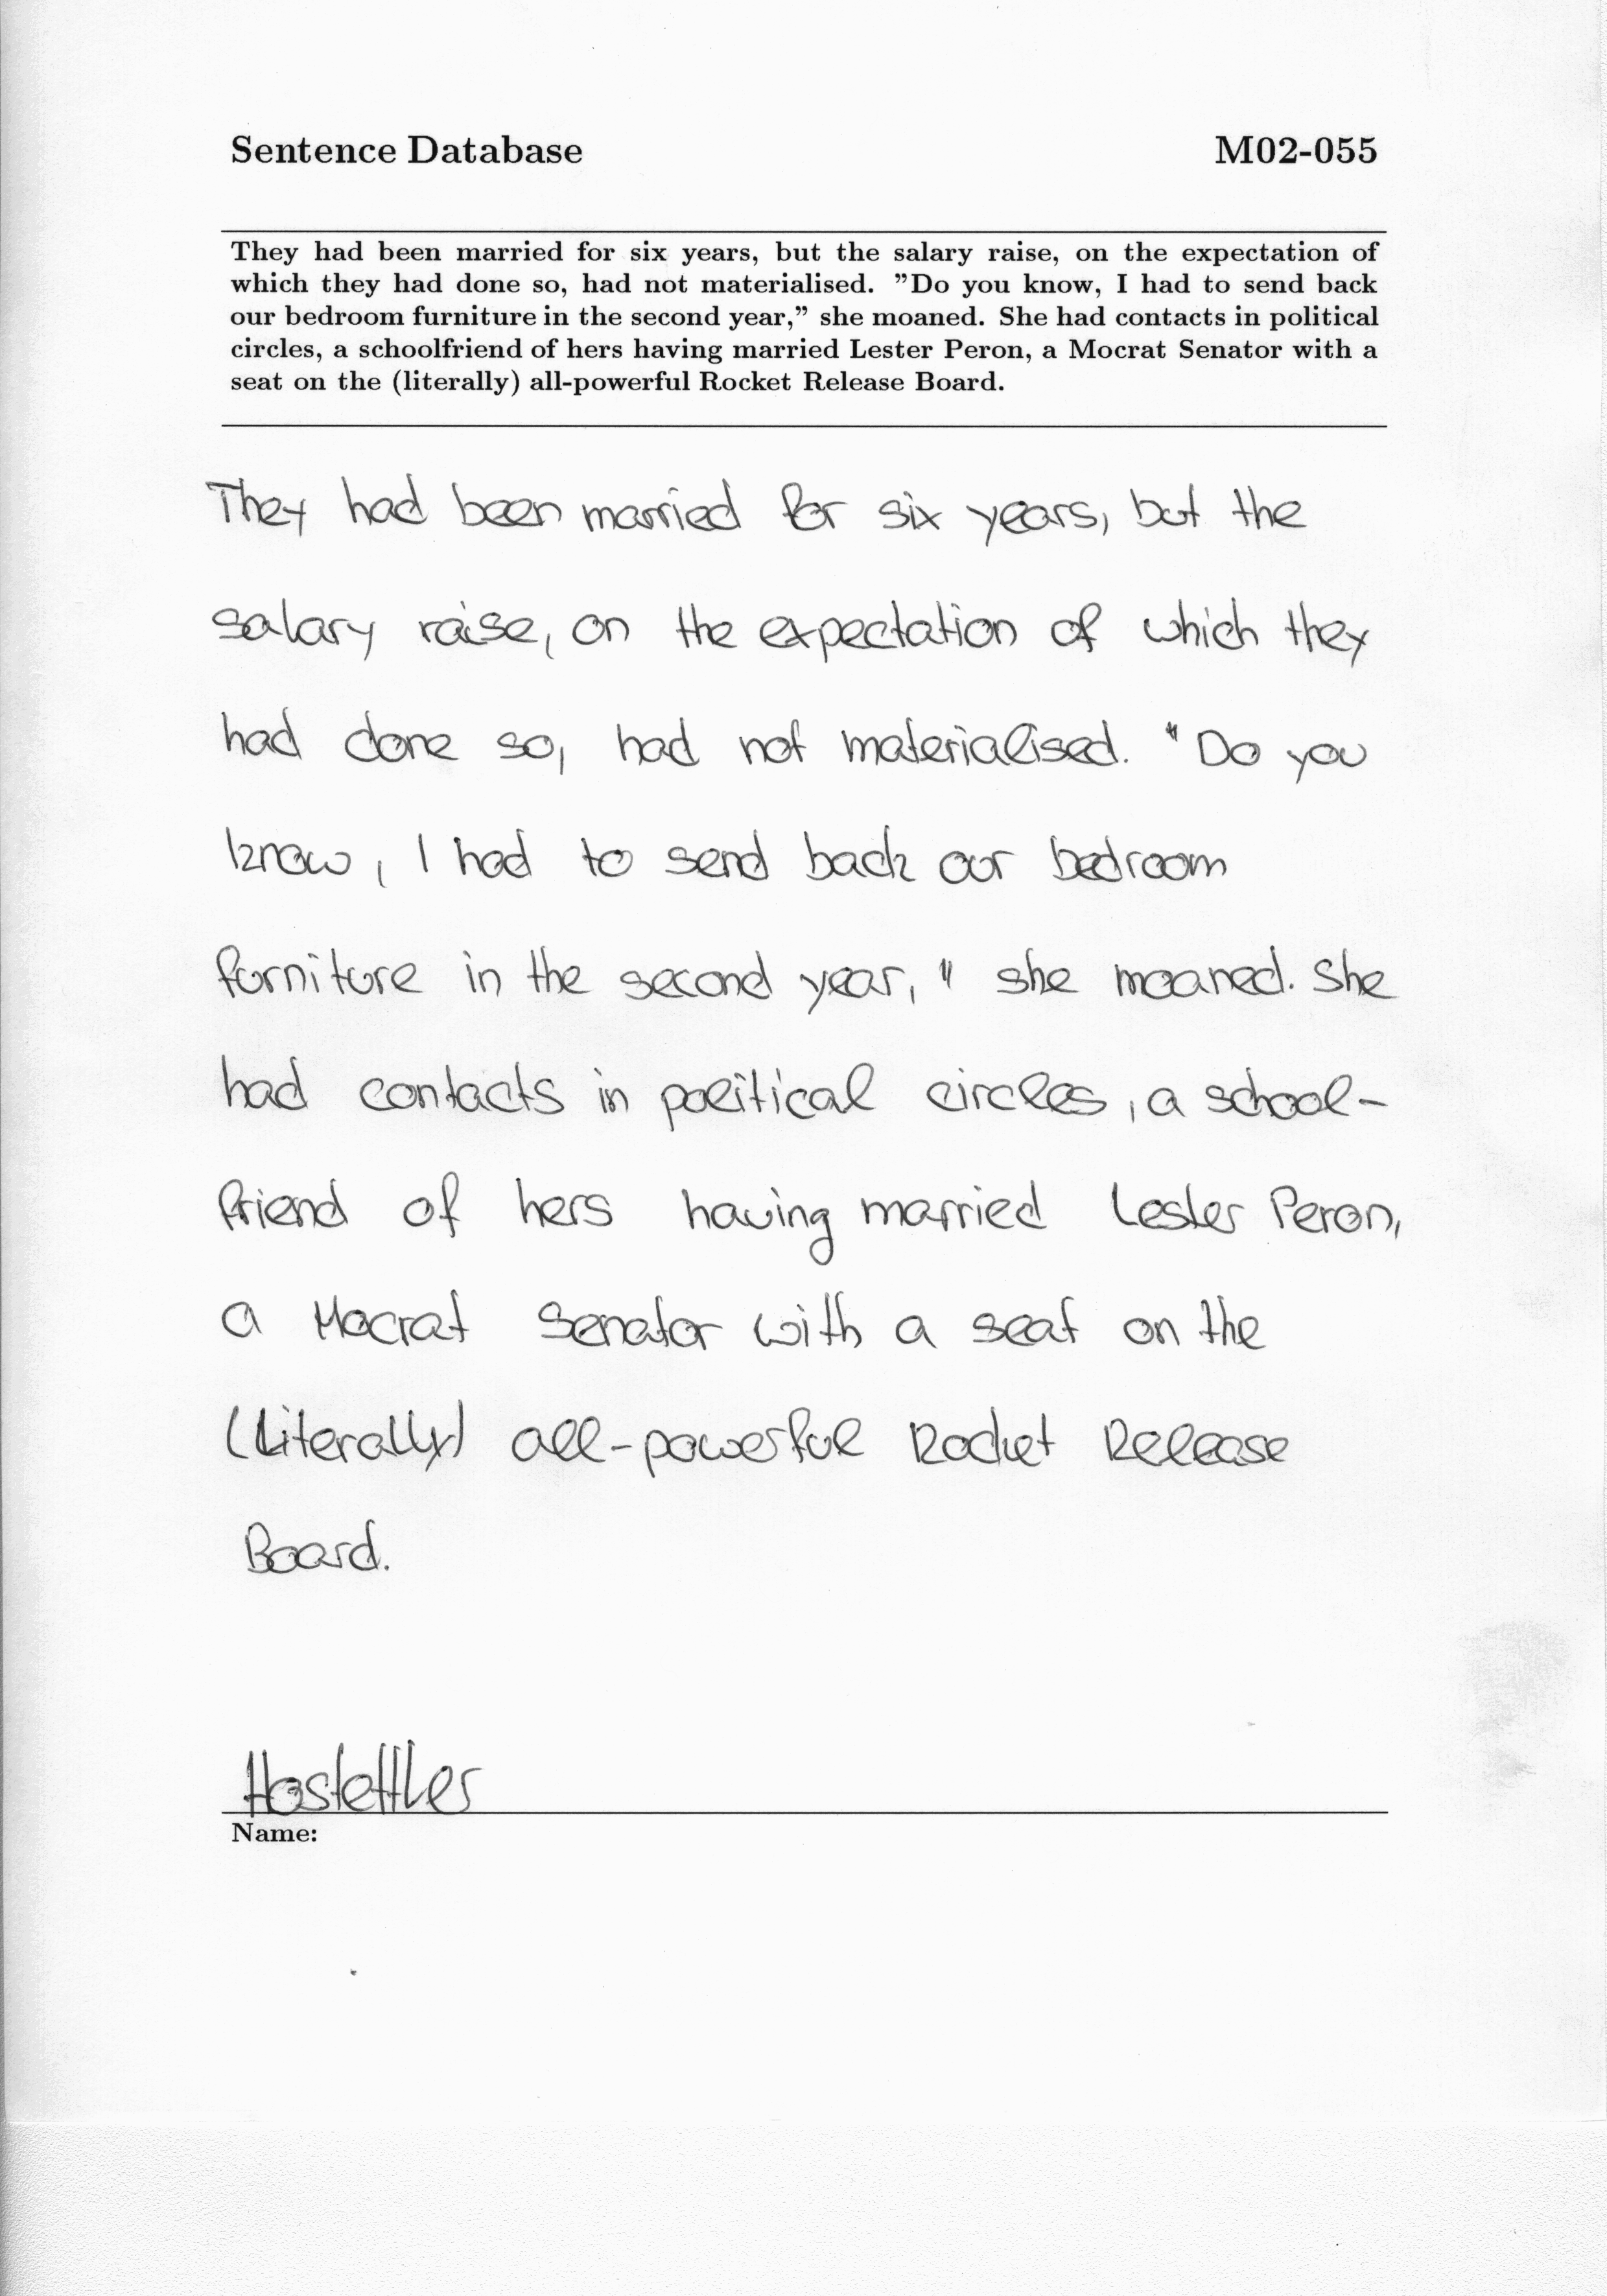 Sentence Database M02-055
They had been married for six years, but the salary raise, on the expectation of
which they had done so, had not materialised. ”Do you know, I had to send back
our bedroom furniture in the second year,” she moaned. She had contacts in political
circles, a schoolfriend of hers having married Lester Peron, a Mocrat Senator with a
seat on the (literally) all-powerful Rocket Release Board.
They had been married for six years, but the
salary raise, on the expectation of which they
had done so, had not materialised. "Do you
know, I had to send back our bedroom
furniture in the second year," she moaned. She
had contacts in political circles, a school-
friend of hers having married Lester Peron,
a Mocrat Senator with a seat on the
(literally) all-powerful Rocket Release
Board.
Hostettler
Name: